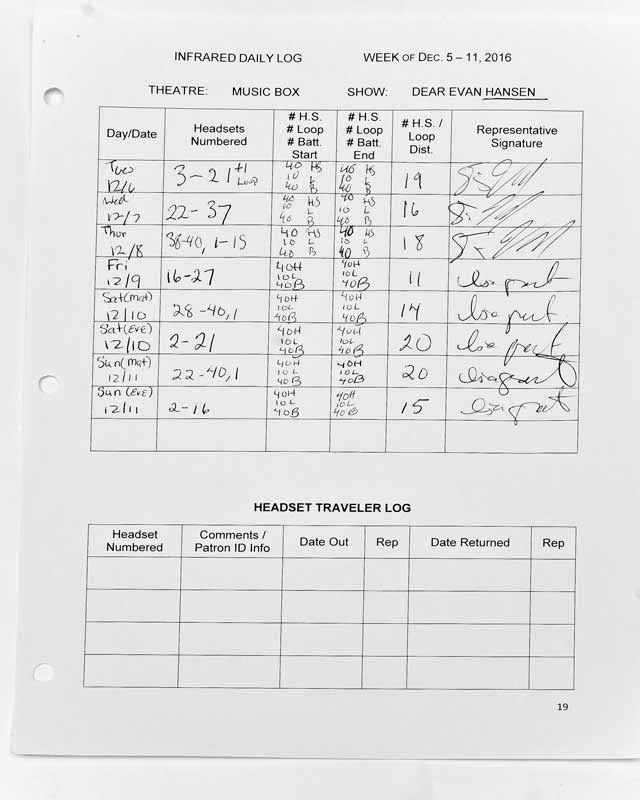 INFRARED DAILY LOG WEEK OF DEC. 5 – 11, 2016
THEATRE: MUSIC BOX SHOW: DEAR EVAN HANSEN
Day/Date Headsets Numbered # H.S. # Loop # Batt. Start # H.S. # Loop # Batt. End # H.S. / Loop Dist. Representative Signature
Tues 12/6 3-21 +1 Loop 40 HS 10 L 40 B 40 HS 10 L 40 B 19
Wed 12/7 22-37 40 HS 10 L 40 B 40 HS 10 L 40 B 16
Thur 12/8 38-40, 1-15 40 HS 10 L 40 B 40 HS 10 L 40 B 18
Fri 12/9 16-27 40H 10L 40B 40H 10L 40B 11
Sat(mat) 12/10 28-40,1 40H 10L 40B 40H 10L 40B 14
Sat(Eve) 12/10 2-21 40H 10L 40B 40H 10L 40B 20
Sun(mat) 12/11 22-40,1 40H 10L 40B 40H 10L 40B 20
Sun(Eve) 12/11 2-16 40H 10L 40B 40H 10L 40B 15
HEADSET TRAVELER LOG
Headset Numbered Comments / Patron ID Info Date Out Rep Date Returned Rep
19